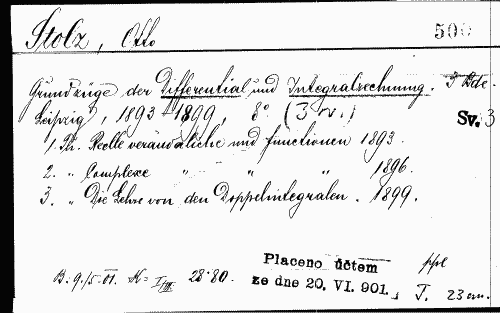 Stolz, Otto
500
Grundzüge der Differential und Integralrechnung. 3 Bde.
Leipzig, 1893-1899, 8° (3 sv.)
Sv. 3
1. Th. Reelle veränderliche und functionen 1893.
2. " Complexe " " " 1896.
3. " Die Lehre von den Doppelintegralen. 1899.
B. 9./5. 01. K= I/III 28·80.
Placeno účtem ppl
ze dne 20. VI. 901. T. 23 cm.